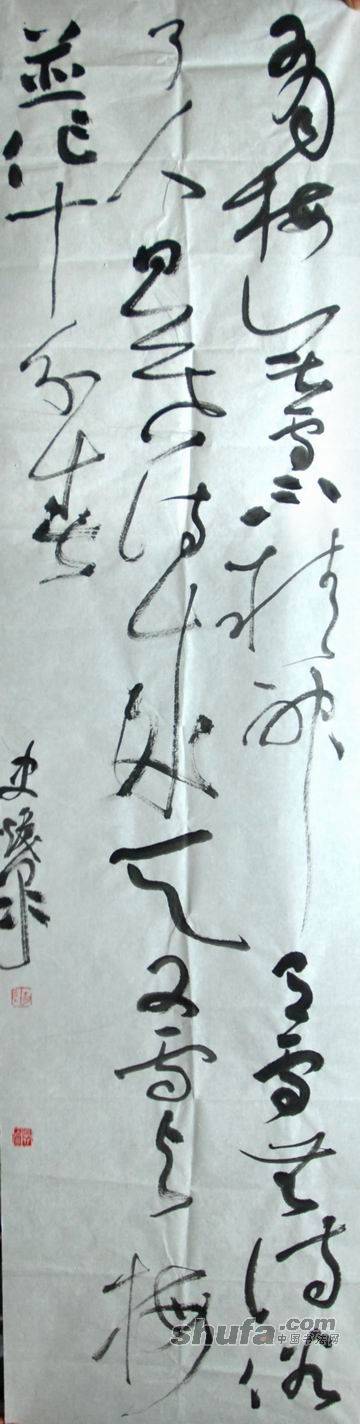 有梅無雪不精神有雪無詩俗
了人日暮詩成天又雪与梅
並作十分春
史
shufa.com
中国书法网